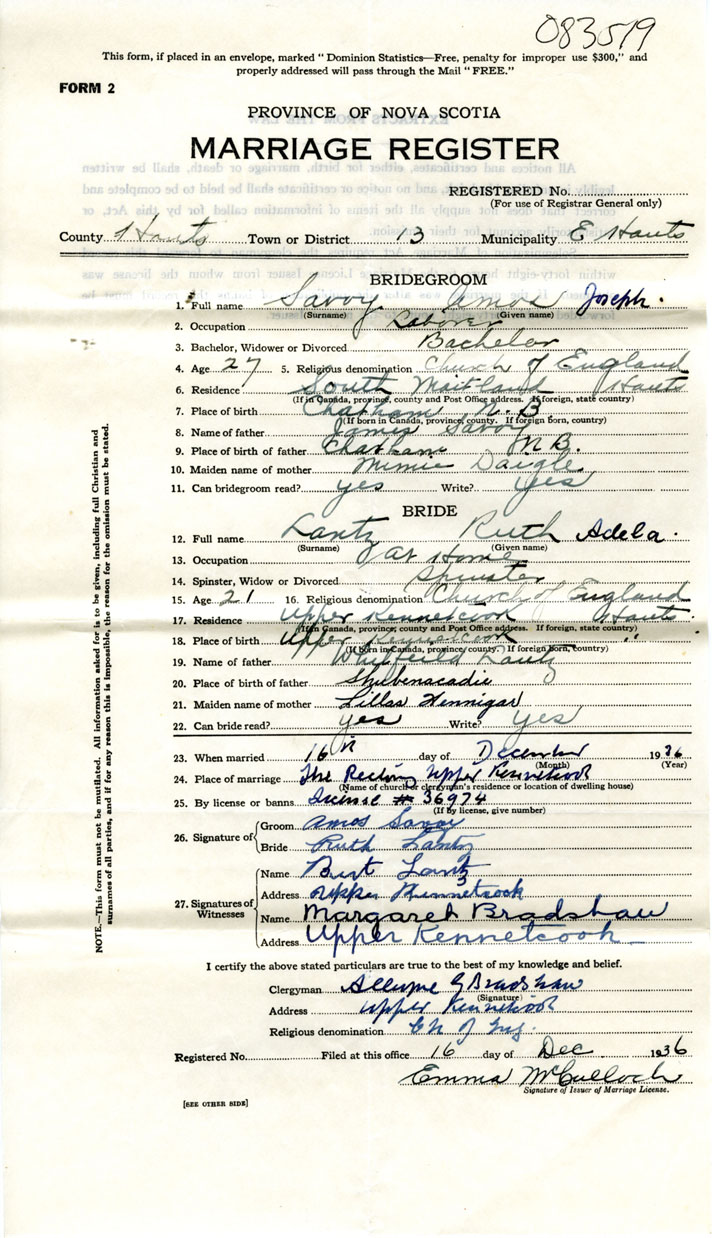 083519
This form, if placed in an envelope, marked "Dominion Statistics—Free, penalty for improper use $300," and
properly addressed will pass through the Mail "FREE."
FORM 2
PROVINCE OF NOVA SCOTIA
MARRIAGE REGISTER
REGISTERED No.
(For use of Registrar General only)
County Hants Town or District 13 Municipality E Hants
BRIDEGROOM
1. Full name Savoy Amos Joseph.
(Surname) (Given name)
2. Occupation Laborer
3. Bachelor, Widower or Divorced Bachelor
4. Age 27 5. Religious denomination Church of England
6. Residence South Maitland Hants
(If in Canada, province, county and Post Office address. If foreign, state country)
7. Place of birth Chatham N.B
(If born in Canada, province, county. If foreign born, country)
8. Name of father James Savoy
9. Place of birth of father Chatham N.B.
10. Maiden name of mother Minnie Daigle
11. Can bridegroom read? yes Write? yes
BRIDE
12. Full name Lantz Ruth Adela.
(Surname) (Given name)
13. Occupation at Home
14. Spinster, Widow or Divorced Spinster
15. Age 21 16. Religious denomination Church of England
17. Residence Upper Kennetcook Hants
(If in Canada, province, county and Post Office address. If foreign, state country)
18. Place of birth Upper Kennetcook "
(If born in Canada, province, county. If foreign born, country)
19. Name of father Lantz
20. Place of birth of father Shubenacadie
21. Maiden name of mother Lillas Hennigar
22. Can bride read? yes Write? yes
23. When married 16th day of December 1936
(Month) (Year)
24. Place of marriage The Rectory Upper Kennetcook
(Name of church or clergyman's residence or location of dwelling house)
25. By license or banns License # 36974
(If by license, give number)
26. Signature of Groom Amos Savoy
Bride Ruth Lantz
27. Signatures of Witnesses Name Burt Lantz
Address Upper Kennetcook
Name Margaret Bradshaw
Address Upper Kennetcook
I certify the above stated particulars are true to the best of my knowledge and belief.
Clergyman G Bradshaw
(Signature)
Address Upper Kennetcook
Religious denomination Ch of Eng.
Registered No. Filed at this office 16 day of Dec 1936
Emma McCulloch
Signature of Issuer of Marriage License.
[SEE OTHER SIDE]
NOTE.—This form must not be mutilated. All information asked for is to be given, including full Christian and
surnames of all parties, and if for any reason this is impossible, the reason for the omission must be stated.